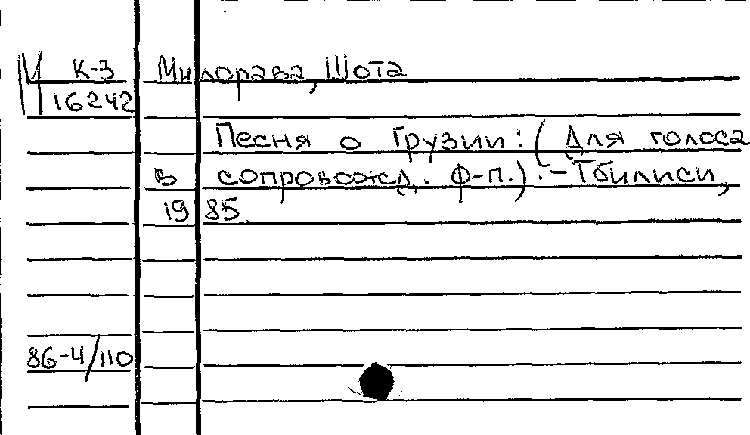 М К-3 Милорава, Шота
16242
Песня о Грузии: (Для голоса
в сопровожд. ф-п.). - Тбилиси,
1985.
86-4/110